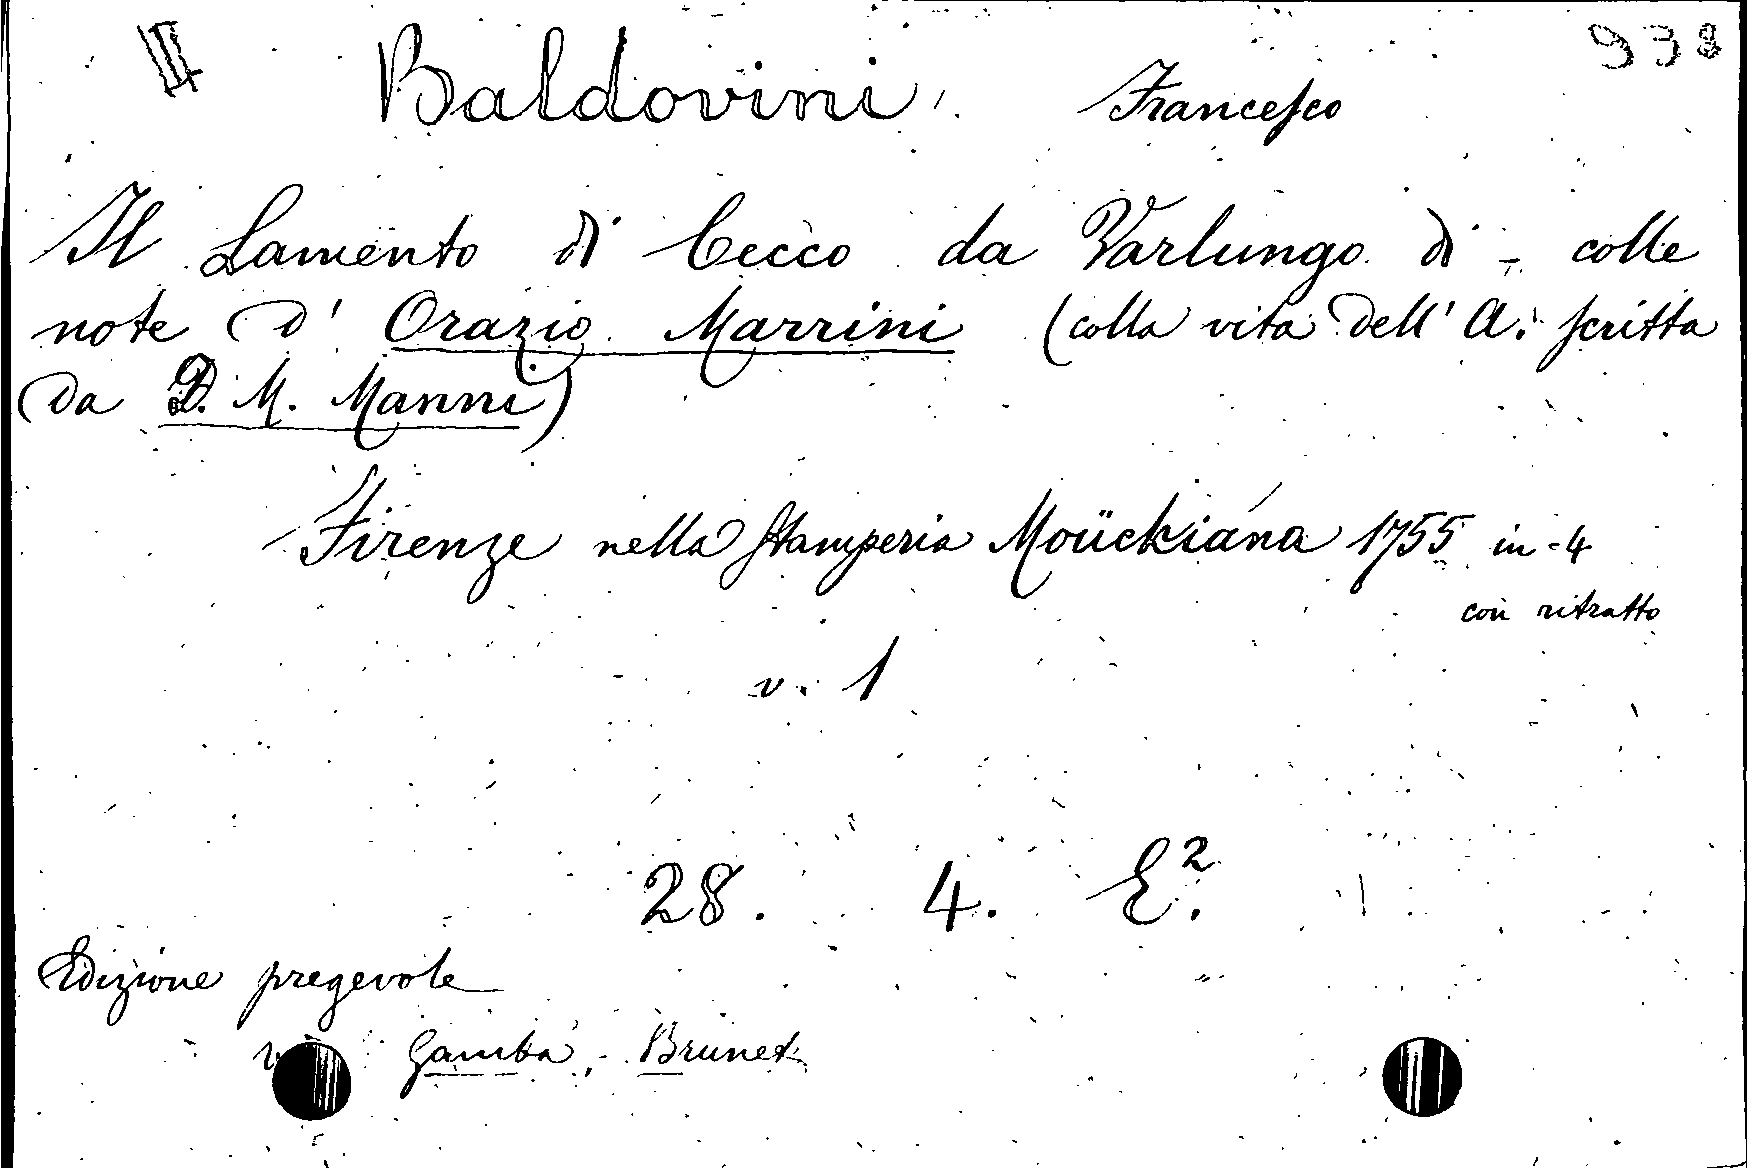 Baldovini, Francesco 938
Il Lamento di Cecco da Varlungo di - colle
note d' Orazio Marrini (colla vita dell' A. scritta
da D. M. Manni)
Firenze nella Stamperia Moückiana 1755 in-4
con ritratto
v. 1
28. 4. E².
Edizione pregevole
Gamba, Brunet